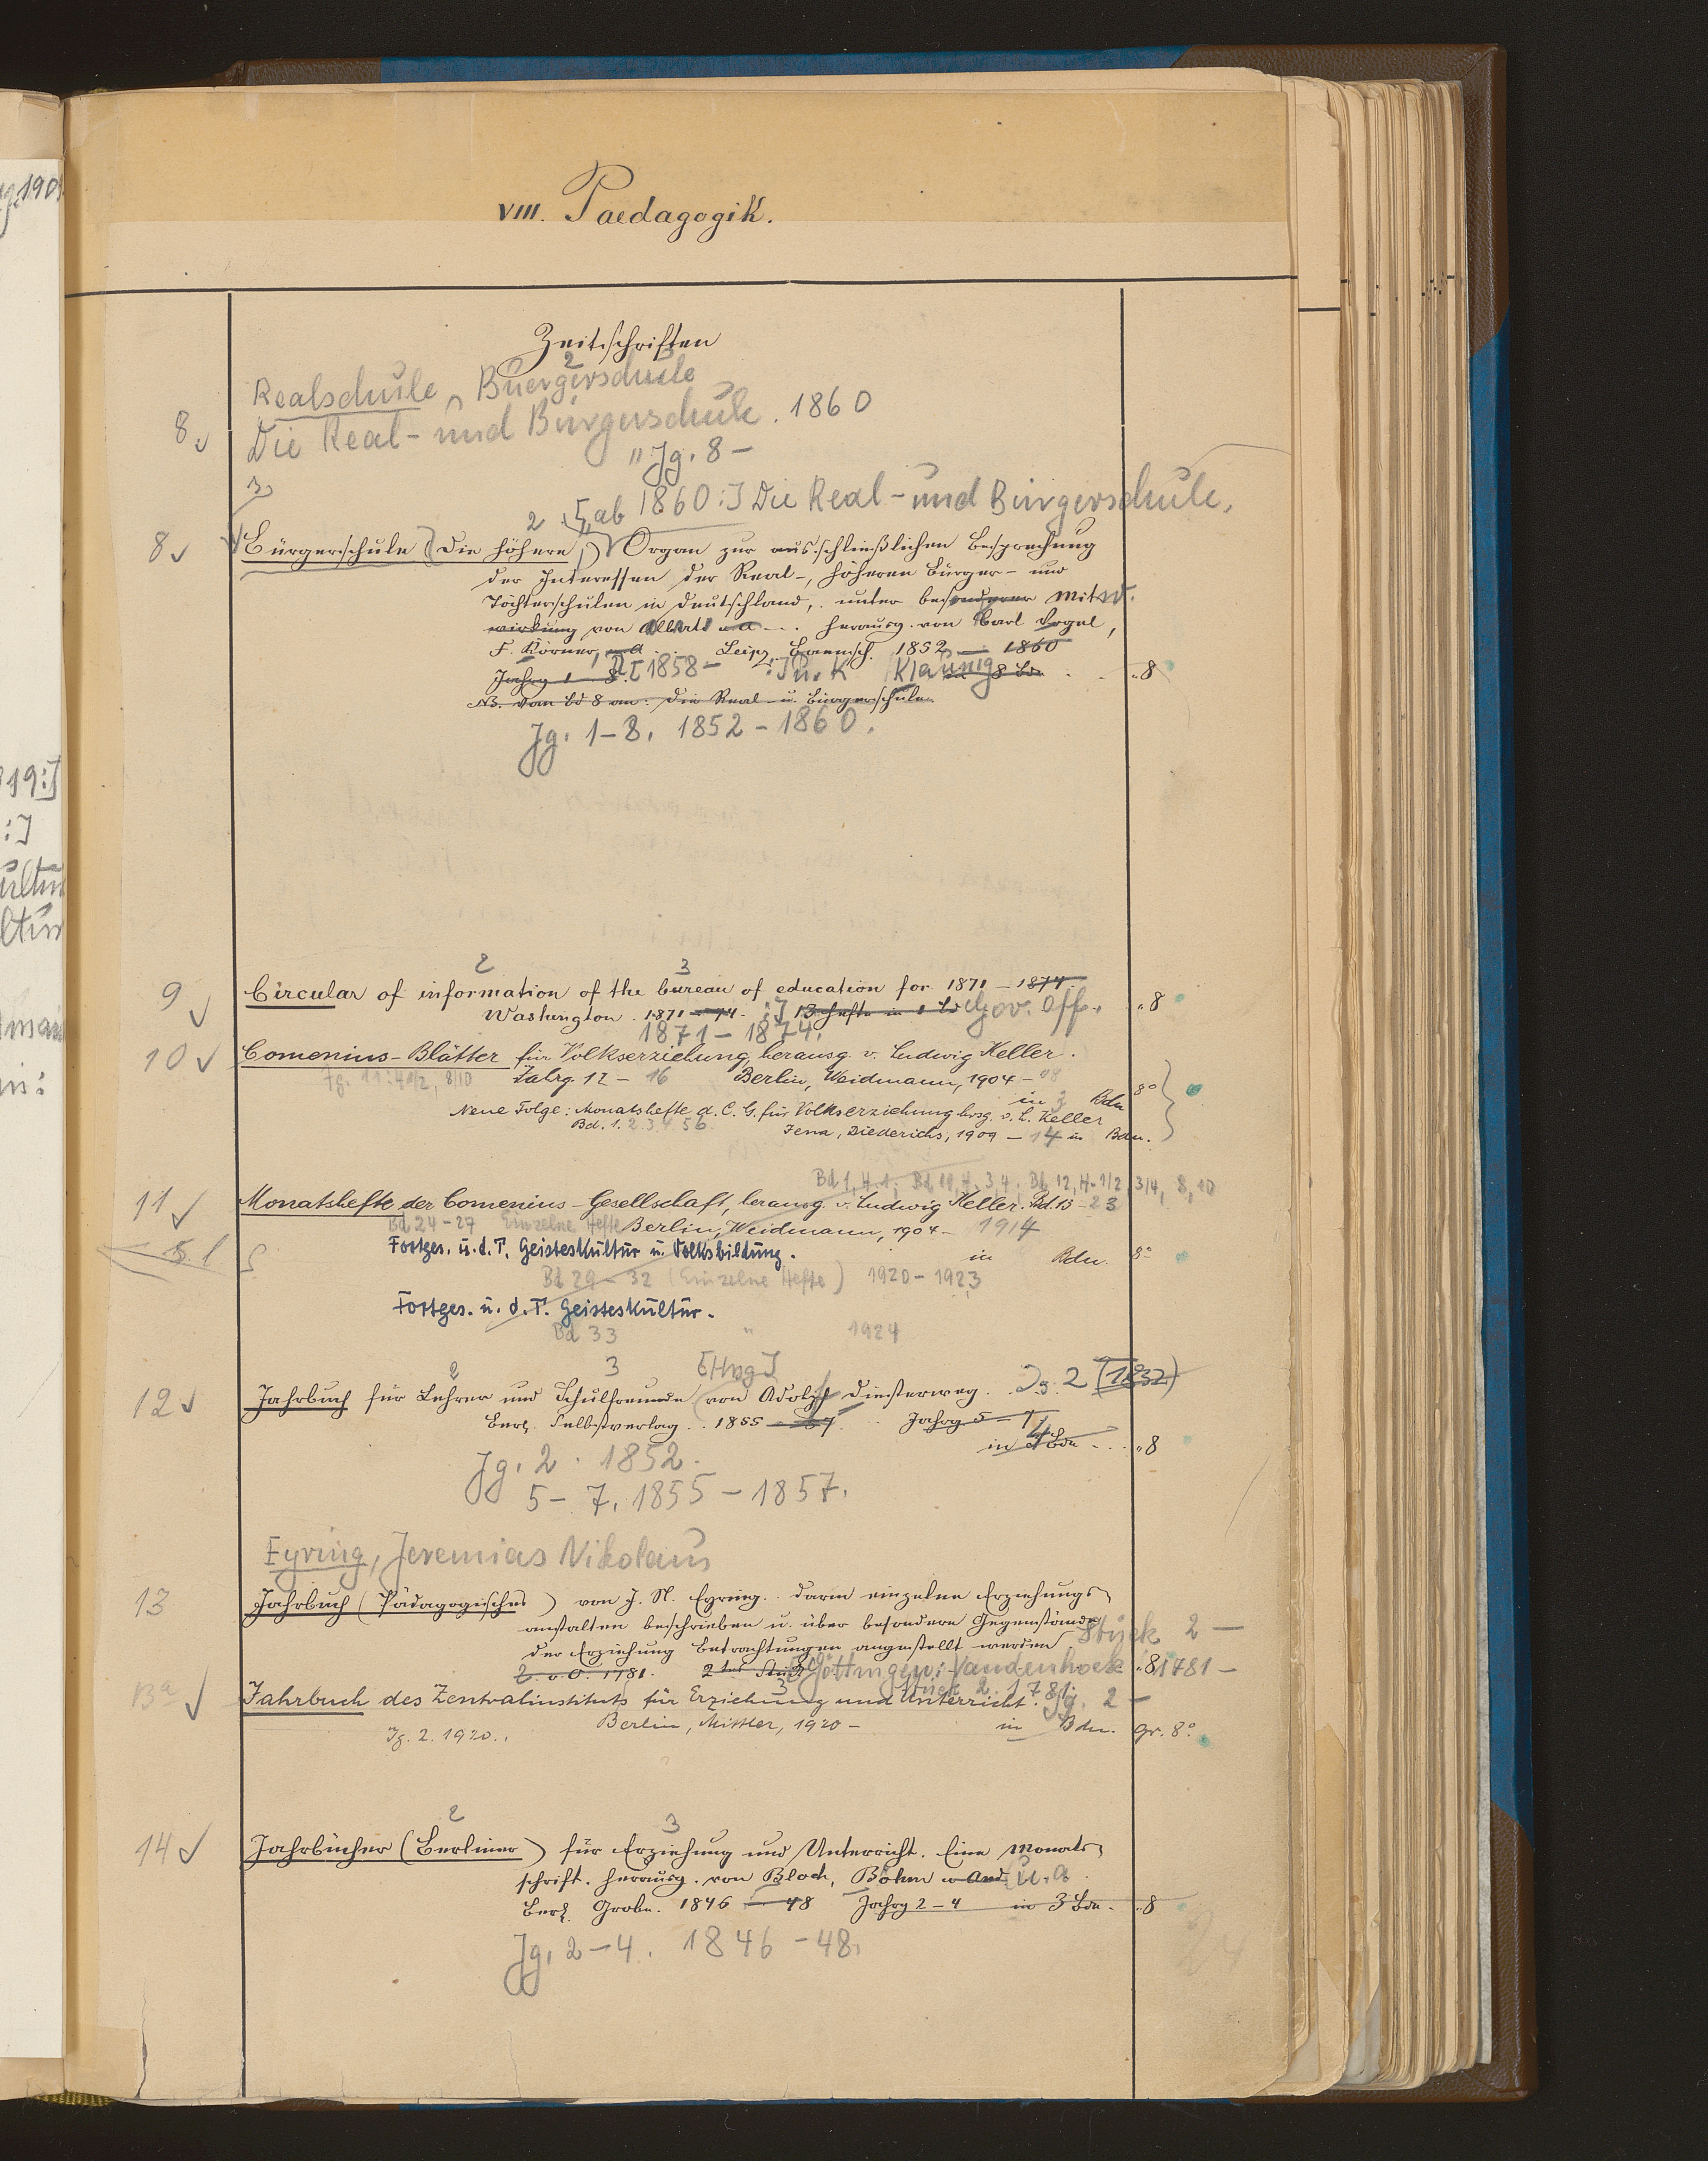 VIII. Paedagogik.
Zeitschriften
Realschule, Buergerschule
2
8. Die Real- und Bürgerschule. 1860
" Jg. 8 -
3
2 [ab 1860:] Die Real- und Bürgerschule,
8 Bürgerschule (die höhere,) Organ zur ausschließlichen Besprechung
der Interessen der Real-, höheren Bürger- und
Töchterschulen in Deutschland, unter besonderer Mitw.
wirkung von Alberti u a herausg. von Carl Vogel,
F. Körner, u a Leipz. Brennsch. 1852 - 1860
Jahrg 1 - 8. [1858- :] u. K Klaunig 8 Bde "8
NB. vom Bd 8 an: die Real- u. Bürgerschule.
Jg. 1-8. 1852-1860.
2 3
9 Circular of information of the bureau of education for 1871 - 1874.
Washington. 1871 - 74. :] 13 Hefte in 1 Bd Gov. Off. "8
1871-1874.
10 Comenius-Blätter für Volkserziehung, herausg. v. Ludwig Keller.
Jg. 11: 4 1/2, 8/10 Jahrg. 12 - 16 Berlin, Weidmann, 1904 - 08
in 3 Bdn 8°
Neue Folge: Monatshefte d. C. G. für Volkserziehung hrsg. v. L. Keller
Bd. 1. 2 3 4 5 6 Jena, Diederichs, 1909 - 14 in Bdn.
Bd 1, H. 1; Bd 10, H. 3, 4. Bd 12, H. 1/2, 3/4, 8, 10
11 Monatshefte der Comenius-Gesellschaft, herausg. v. Ludwig Keller. Bd. 13 - 23
Bd. 24-27 Einzelne Hefte Berlin, Weidmann, 1904 - 1914
Fortges. u. d. T. Geisteskultur u. Volksbildung. in Bdn. 8°
Bd 29-32 (Einzelne Hefte) 1920-1923
Fortges. u. d. T. Geisteskultur.
Bd 33 " 1924
2 3 [Hrsg]
12 Jahrbuch für Lehrer und Schulfreunde von Adolph Diesterweg. Jg. 2 (1832)
Berl. Selbstverlag. 1855 - 57. Jahrg. 5 - 7
in 4 Bdn "8
Jg. 2. 1852.
5-7. 1855-1857.
Eyring, Jeremias Nikolaus
13 Jahrbuch (Pädagogisches) von J. N. Eyring. darin einzelne Erziehungs-
anstalten beschrieben u. über besondere Gegenstände
der Erziehung Betrachtungen angestellt werden Stück 2 -
1781. 2tes Stück Göttingen: Vandenhoek "8 1781 -
3 Stück 2. 1781
13a Jahrbuch des Zentralinstituts für Erziehung und Unterricht. Jg. 2 -
Berlin, Mittler, 1920 - in Bdn. gr. 8°
Jg. 2. 1920.
2 3
14 Jahrbücher (Berliner) für Erziehung und Unterricht. Eine Monats-
schrift. herausg. von Bloch, Böhm u And. u. a
Berl. Grobe. 1846 - 48 Jahrg 2 - 4 in 3 Bdn. "8
Jg. 2-4. 1846-48.